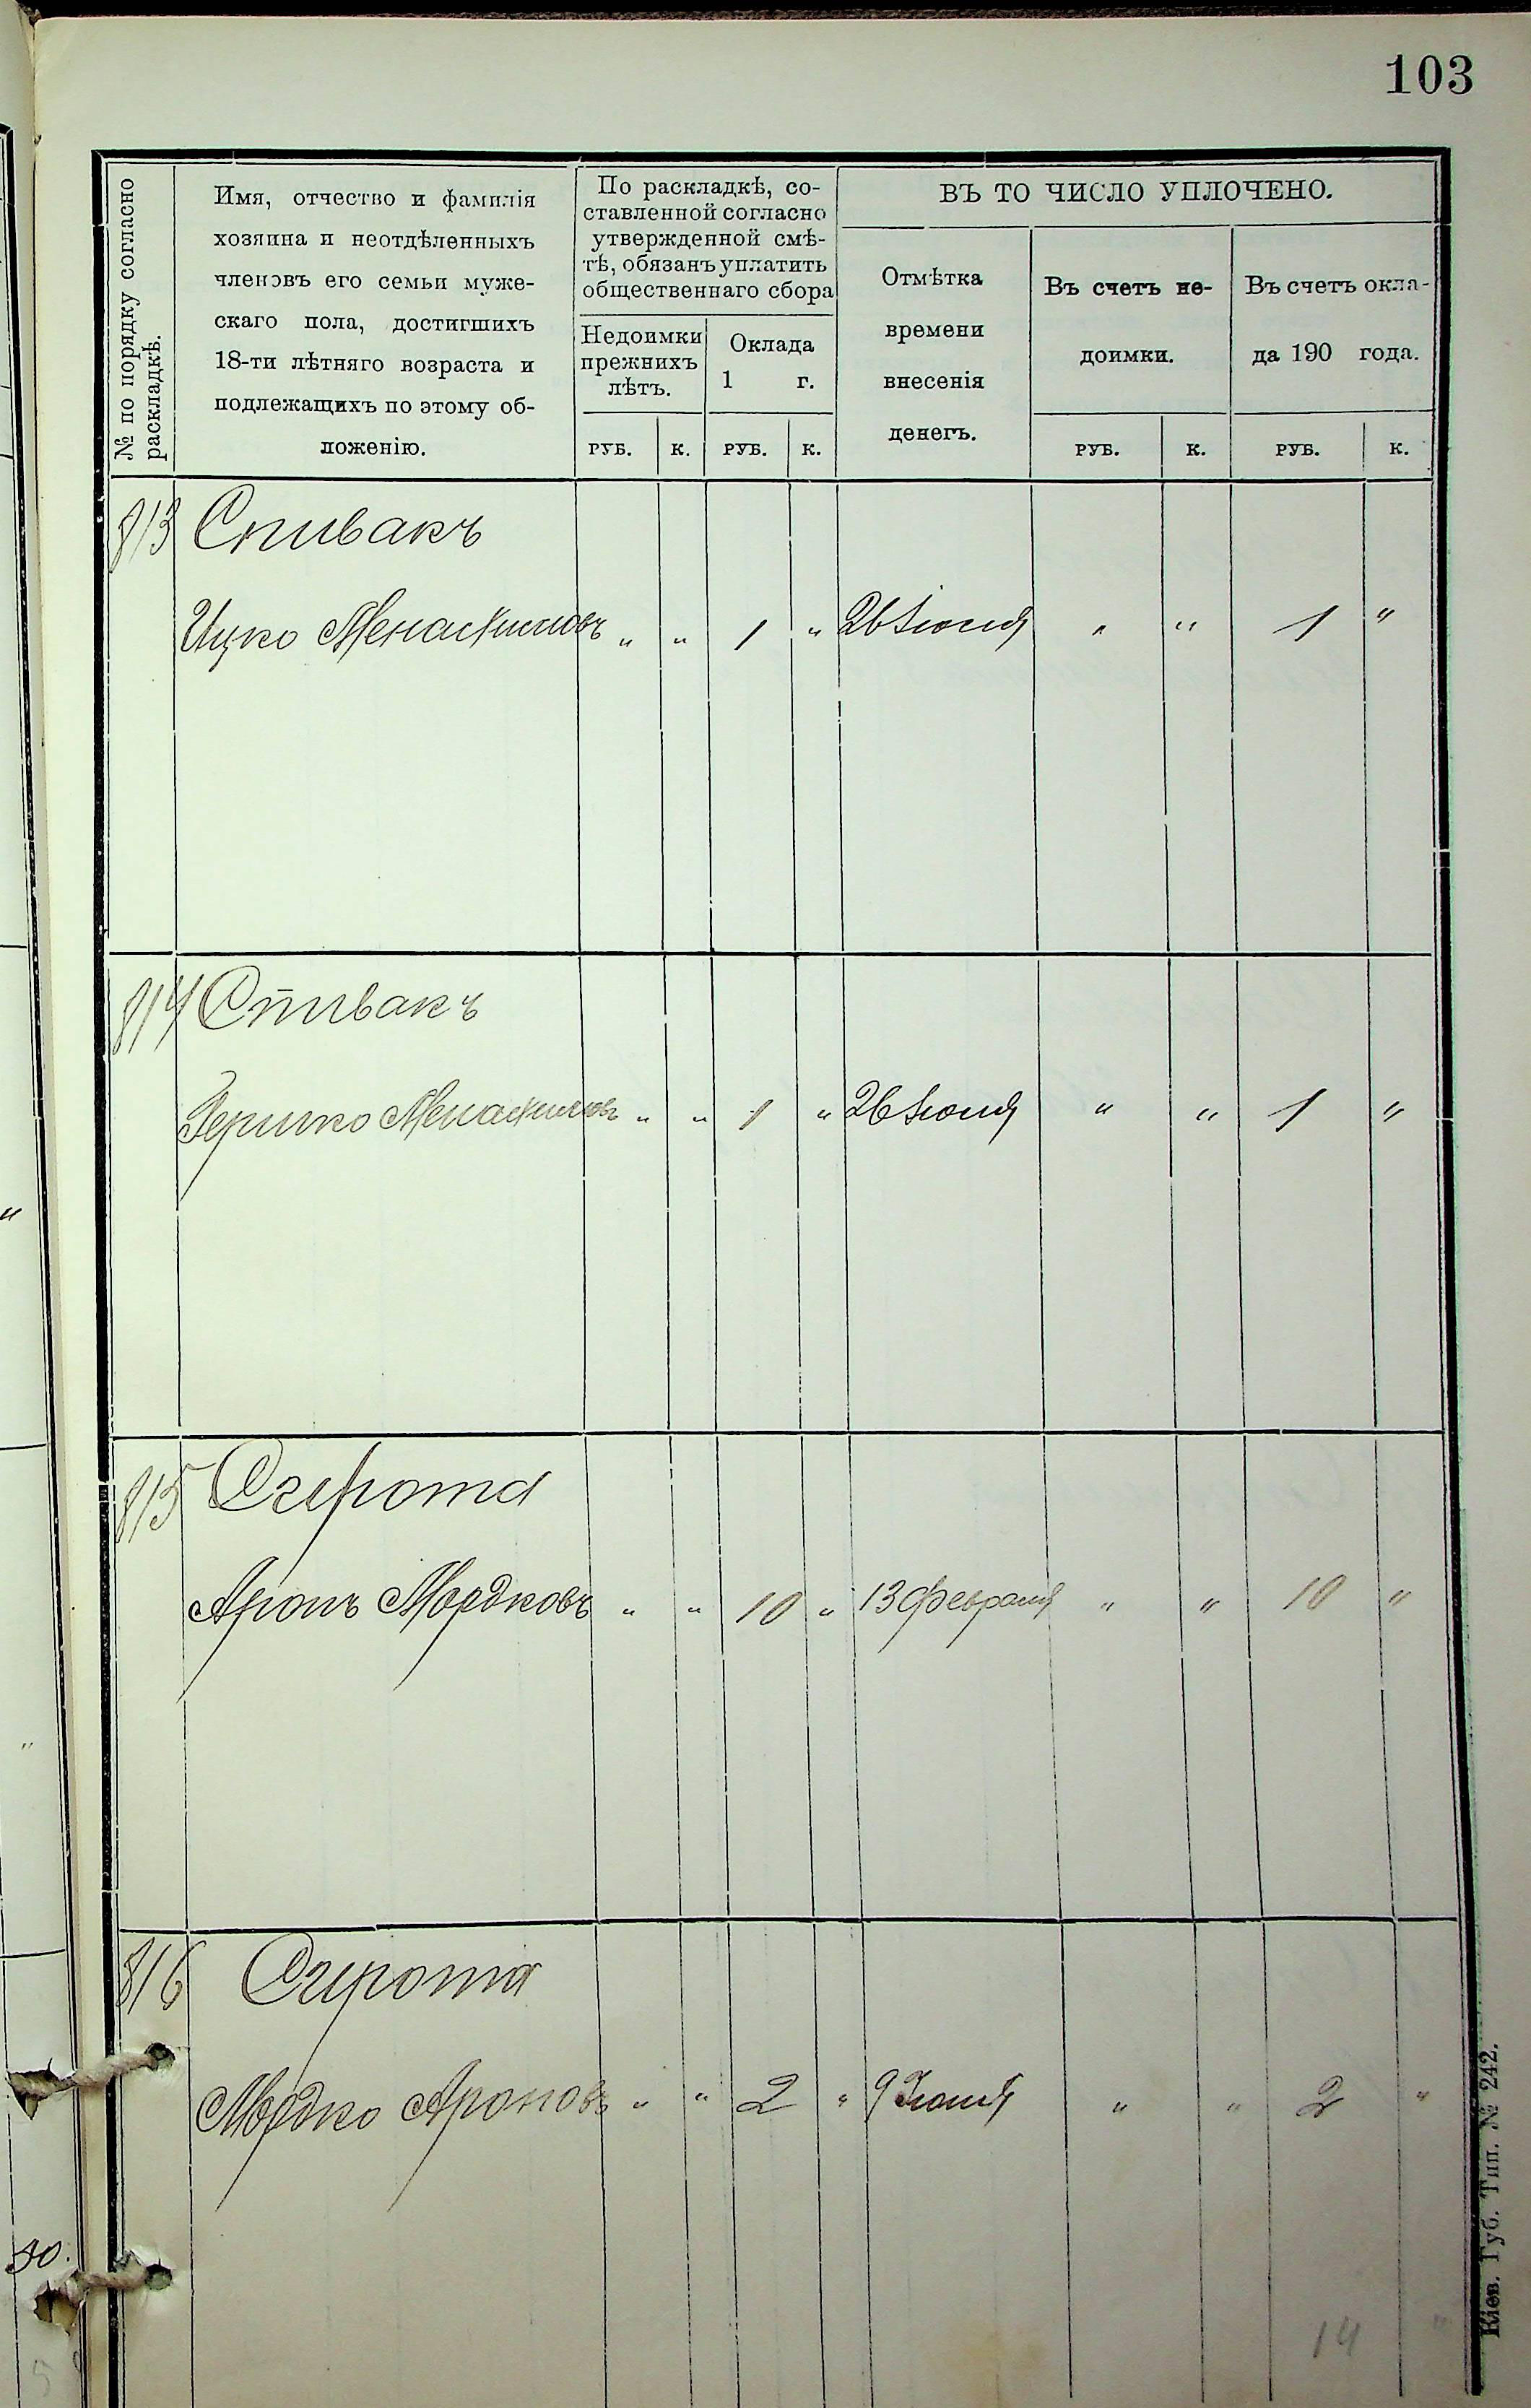 103
№ по порядку согласно
раскладкѣ.
Имя, отчество и фамилія
хозяина и неотдѣленныхъ
членовъ его семьи муже-
скаго пола, достигшихъ
18-ти лѣтняго возраста и
подлежащихъ по этому об-
ложенію.
По раскладкѣ, со-
ставленной согласно
утвержденной смѣ-
тѣ, обязанъ уплатить
общественнаго сбора
Недоимки
прежнихъ
лѣтъ.
Оклада
1 г.
ВЪ ТО ЧИСЛО УПЛОЧЕНО.
Отмѣтка
времени
внесенія
денегъ.
Въ счетъ не-
доимки.
Въ счетъ окла-
да 190 года.
РУБ. К. РУБ. К. РУБ. К. РУБ. К.
813 Спивакъ
Ицко Менахимовъ " " 1 " 26 Іюня " " 1 "
814 Спивакъ
Гершко Менахимовъ " " 1 " 26 Іюня " " 1 "
815 Сирота
Аронъ Мордковъ " " 10 " 13 Февраля " " 10 "
816 Сирота
Мордко Ароновъ " " 2 " 9 Іюня " " 2 "
14 "
Кіев. Губ. Тип. № 242.
"
"
50.